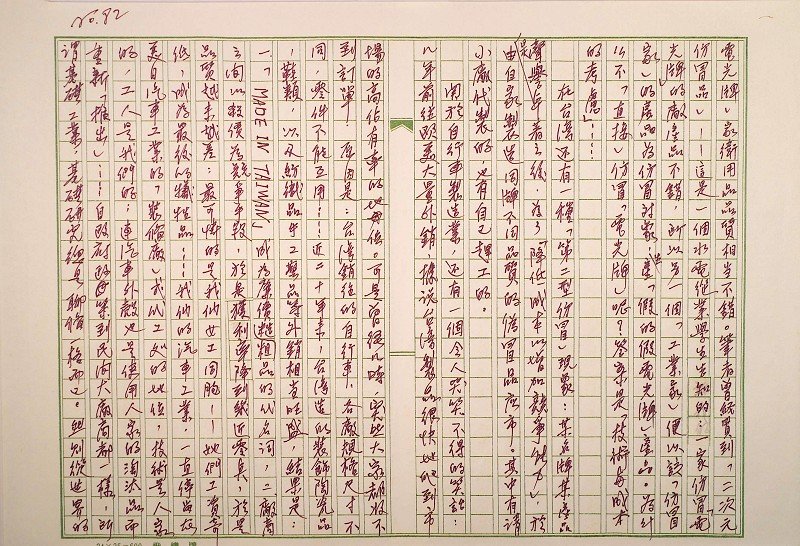 no.92
電光牌」家衛用品品質相當不錯。筆者曾經買到「二次元
仿冒品」——這是一個水電從業學生告知的:一家仿冒「電
光牌」的廠產品不錯,所以另一個「工業家」便以該「仿冒
家」的產品為仿冒對象,造「假的假電光牌」產品。為什
么不「直接」仿冒「電光牌」呢?答案是「技術與成本
的考慮」……
在台灣還有一種「第二型仿冒」現象:某名牌某產品
聲譽卓著之後,為了「降低成本以增加競爭能力」,於是
由自家製造同牌不同品質的偽冒品應市。其中有請
小廠代製的,也有自己趕工的。
關於自行車製造業,還有一個令人哭笑不得的笑話:
几年前往歐美大量外銷,據說台灣製品很快地佔到市
場的高佔有率的地位。可是曾經几時,突然大家都收不
到訂單,原因是:台灣銷往的自行車,各廠規格尺寸不
同,零件不能互用……近二十年來,台灣造的裝飾陶瓷品
,鞋類,以及紡織品手工藝品等外銷相當旺盛,結果是:
一、「MADE IN TAIWAN」成為廉價粗品的代名詞,二廠商
之間以殺價為競爭手段,於是獲利率降到幾近零矣,於是
品質越來越差;最可憐的是我們女工同胞——她們工資奇
低,成為最後的犧牲品……我們的汽車工業,一直停留在
美日汽車工業的「裝備廠」或代工處的地位,技術是人家
的,工人是我們的;連汽車外殼也是使用人家的淘汰品而
重新「推出」……自政府政策到民間大廠商都一樣,所
謂基礎工業,基礎研究總是聊備一格而已。想到從世界的